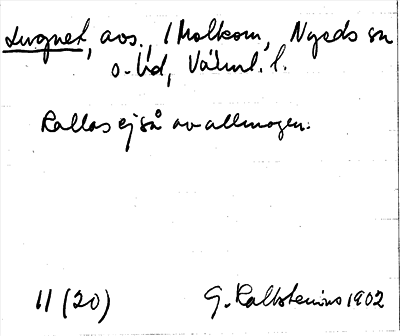 Lugnet, avs., i Molkom, Nyeds sn
o. hd, Värml. l.
Kallas ej så av allmogen.
11 (20) G. Kallstenius 1902